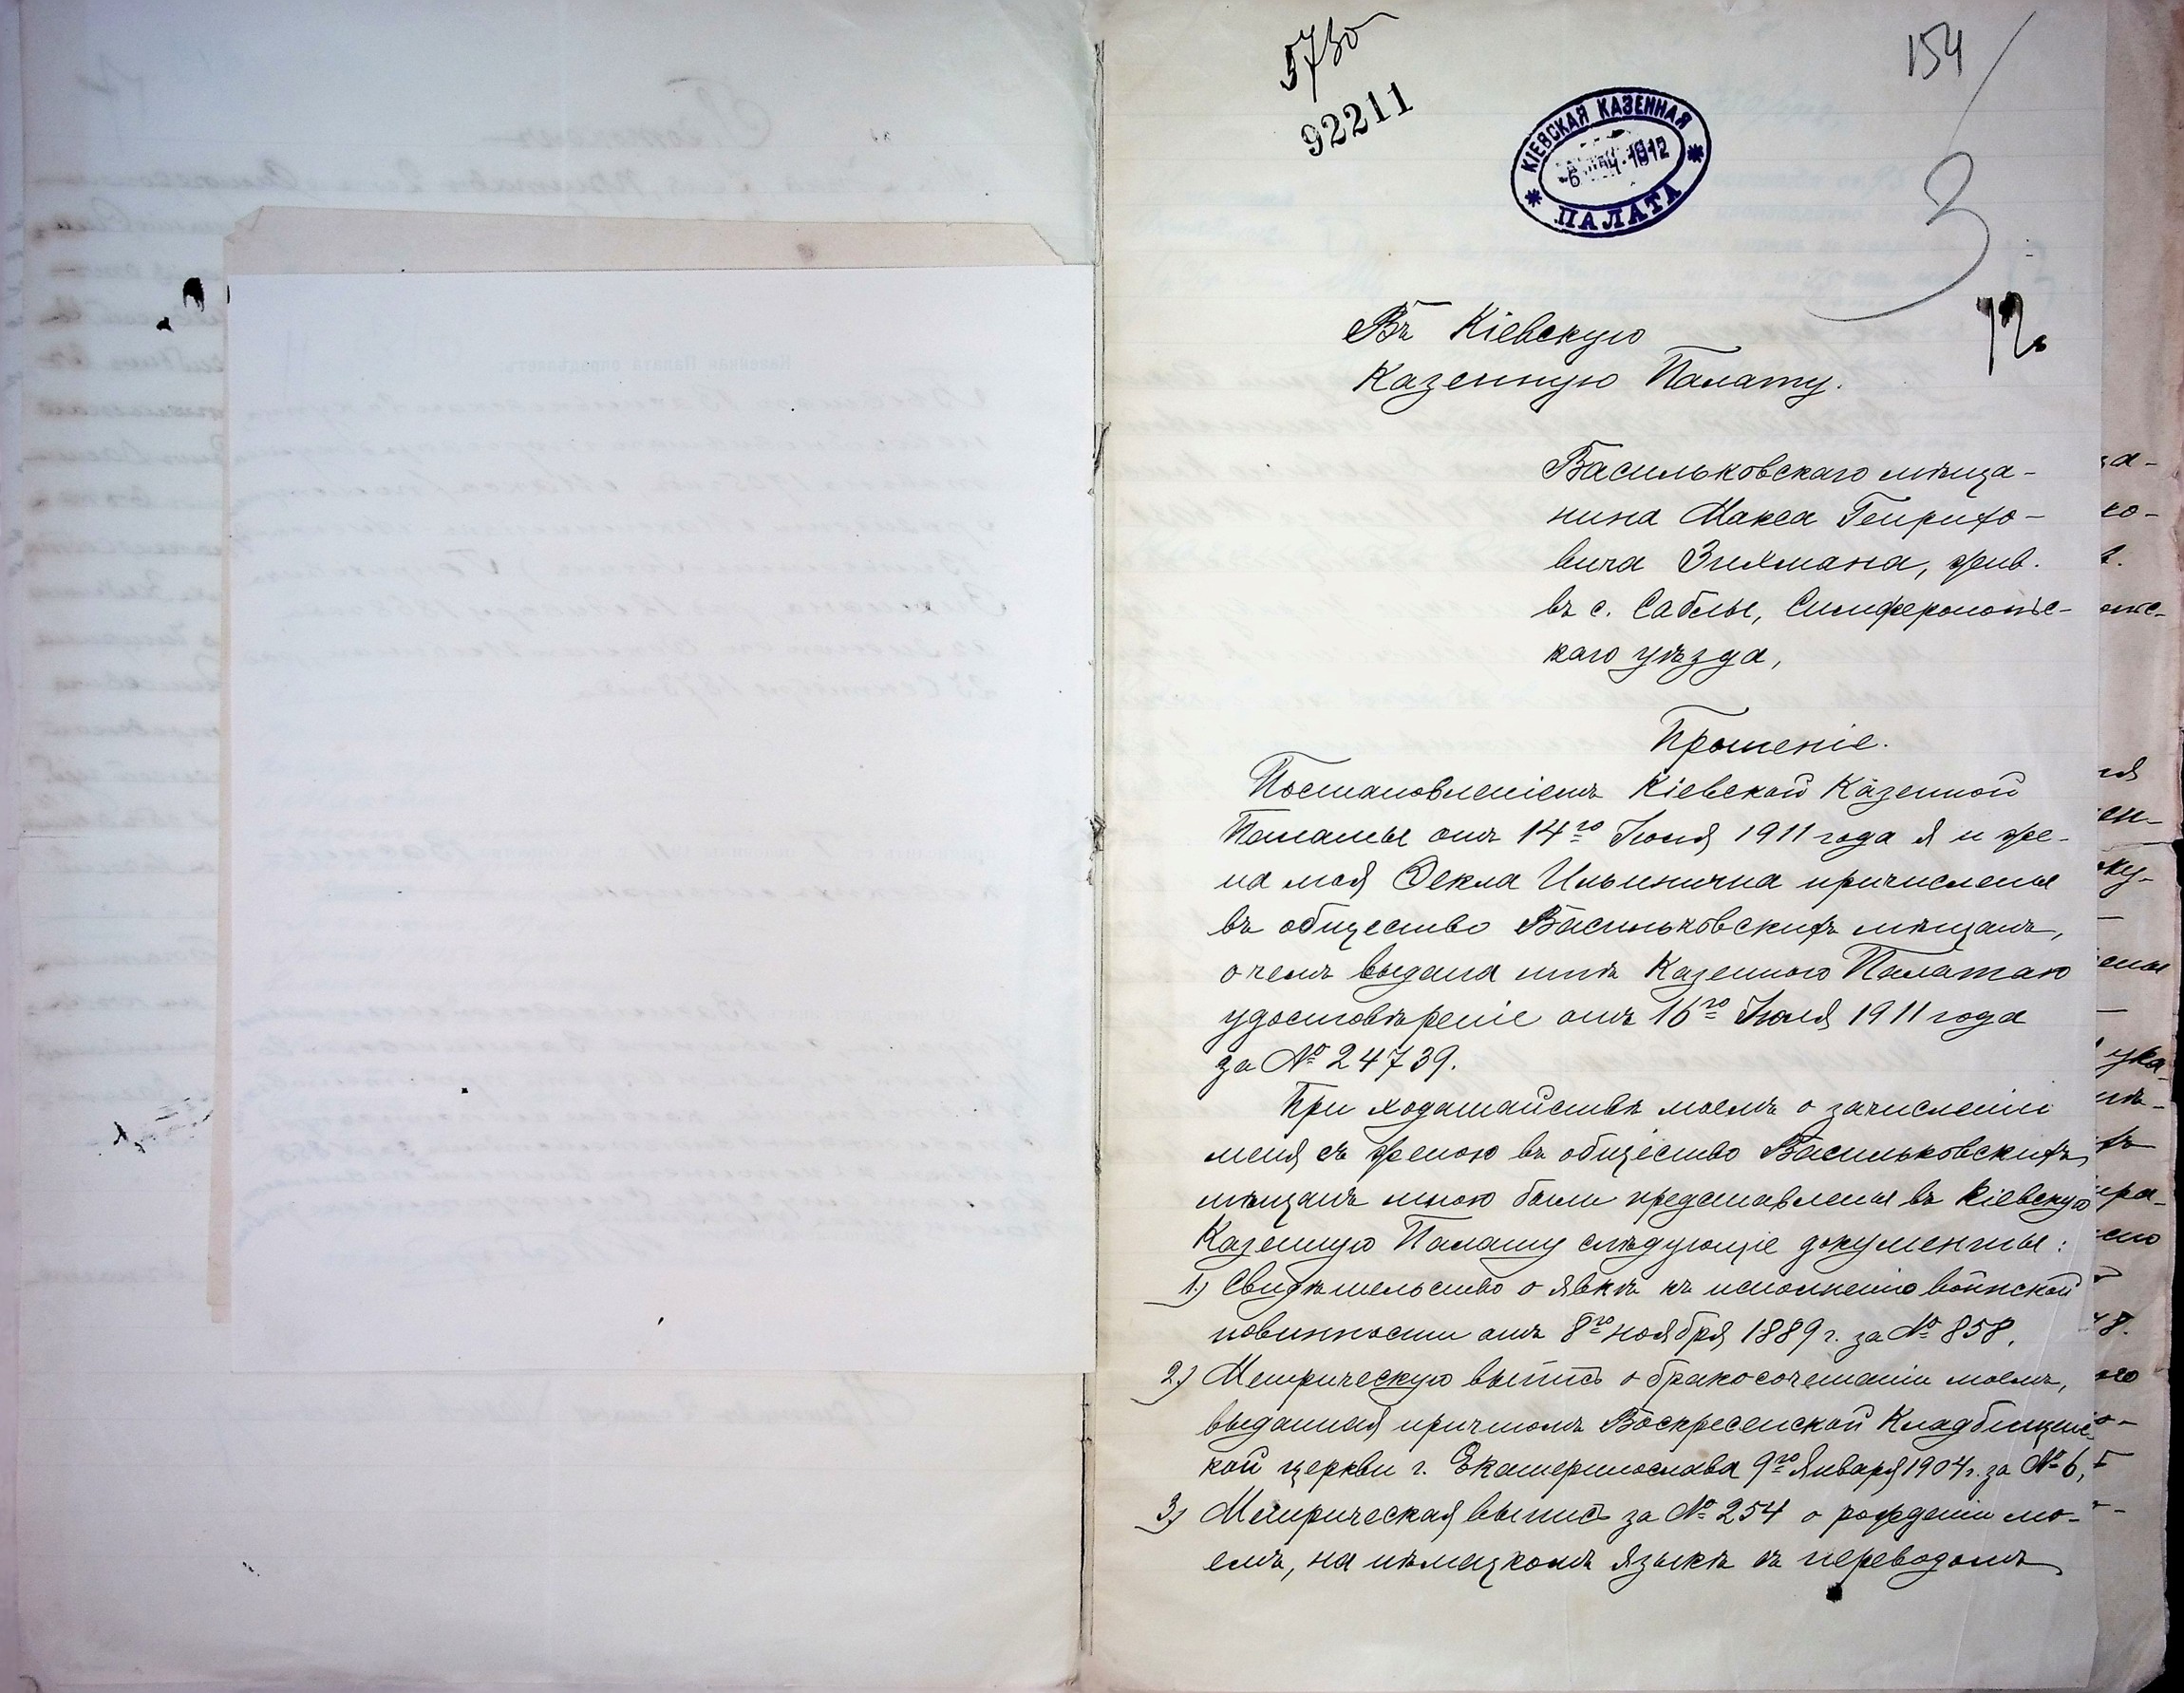 5730
92211
154
КІЕВСКАЯ КАЗЕННАЯ
1912
ПАЛАТА
3
72
Въ Кіевскую
Казенную Палату.
Васильковскаго мѣща-
нина Макса Генрихо-
вича Зихмана, жив.
въ с. Саблы, Симферопольс-
каго уѣзда,
Прошеніе.
Постановленіемъ Кіевской Казенной
Палаты отъ 14го Іюля 1911 года я и же-
на моя Фекла Ильинична причислены
въ общество Васильковскихъ мѣщанъ,
о чемъ выдана мнѣ Казенною Палатаю
удостовѣреніе отъ 16го Іюля 1911 года
за № 24739.
При ходатайствѣ моемъ о зачисленіи
меня съ женою въ общество Васильковскихъ
мѣщанъ мною были представлены въ Кіевскую
Казенную Палату слѣдующіе документы:
1.) Свидѣтельство о явкѣ къ исполненію воинской
повинности отъ 8го ноября 1889 г. за № 858,
2.) Метрическую выпись о бракосочетаніи моемъ,
выданная причтомъ Воскресенской Кладбищенс-
кой церкви г. Екатеринослава 9го Января 1904 г. за № 6,
3) Метрическая выпись за № 254 о рожденіи мо-
емъ, на нѣмецкомъ языкѣ съ переводомъ